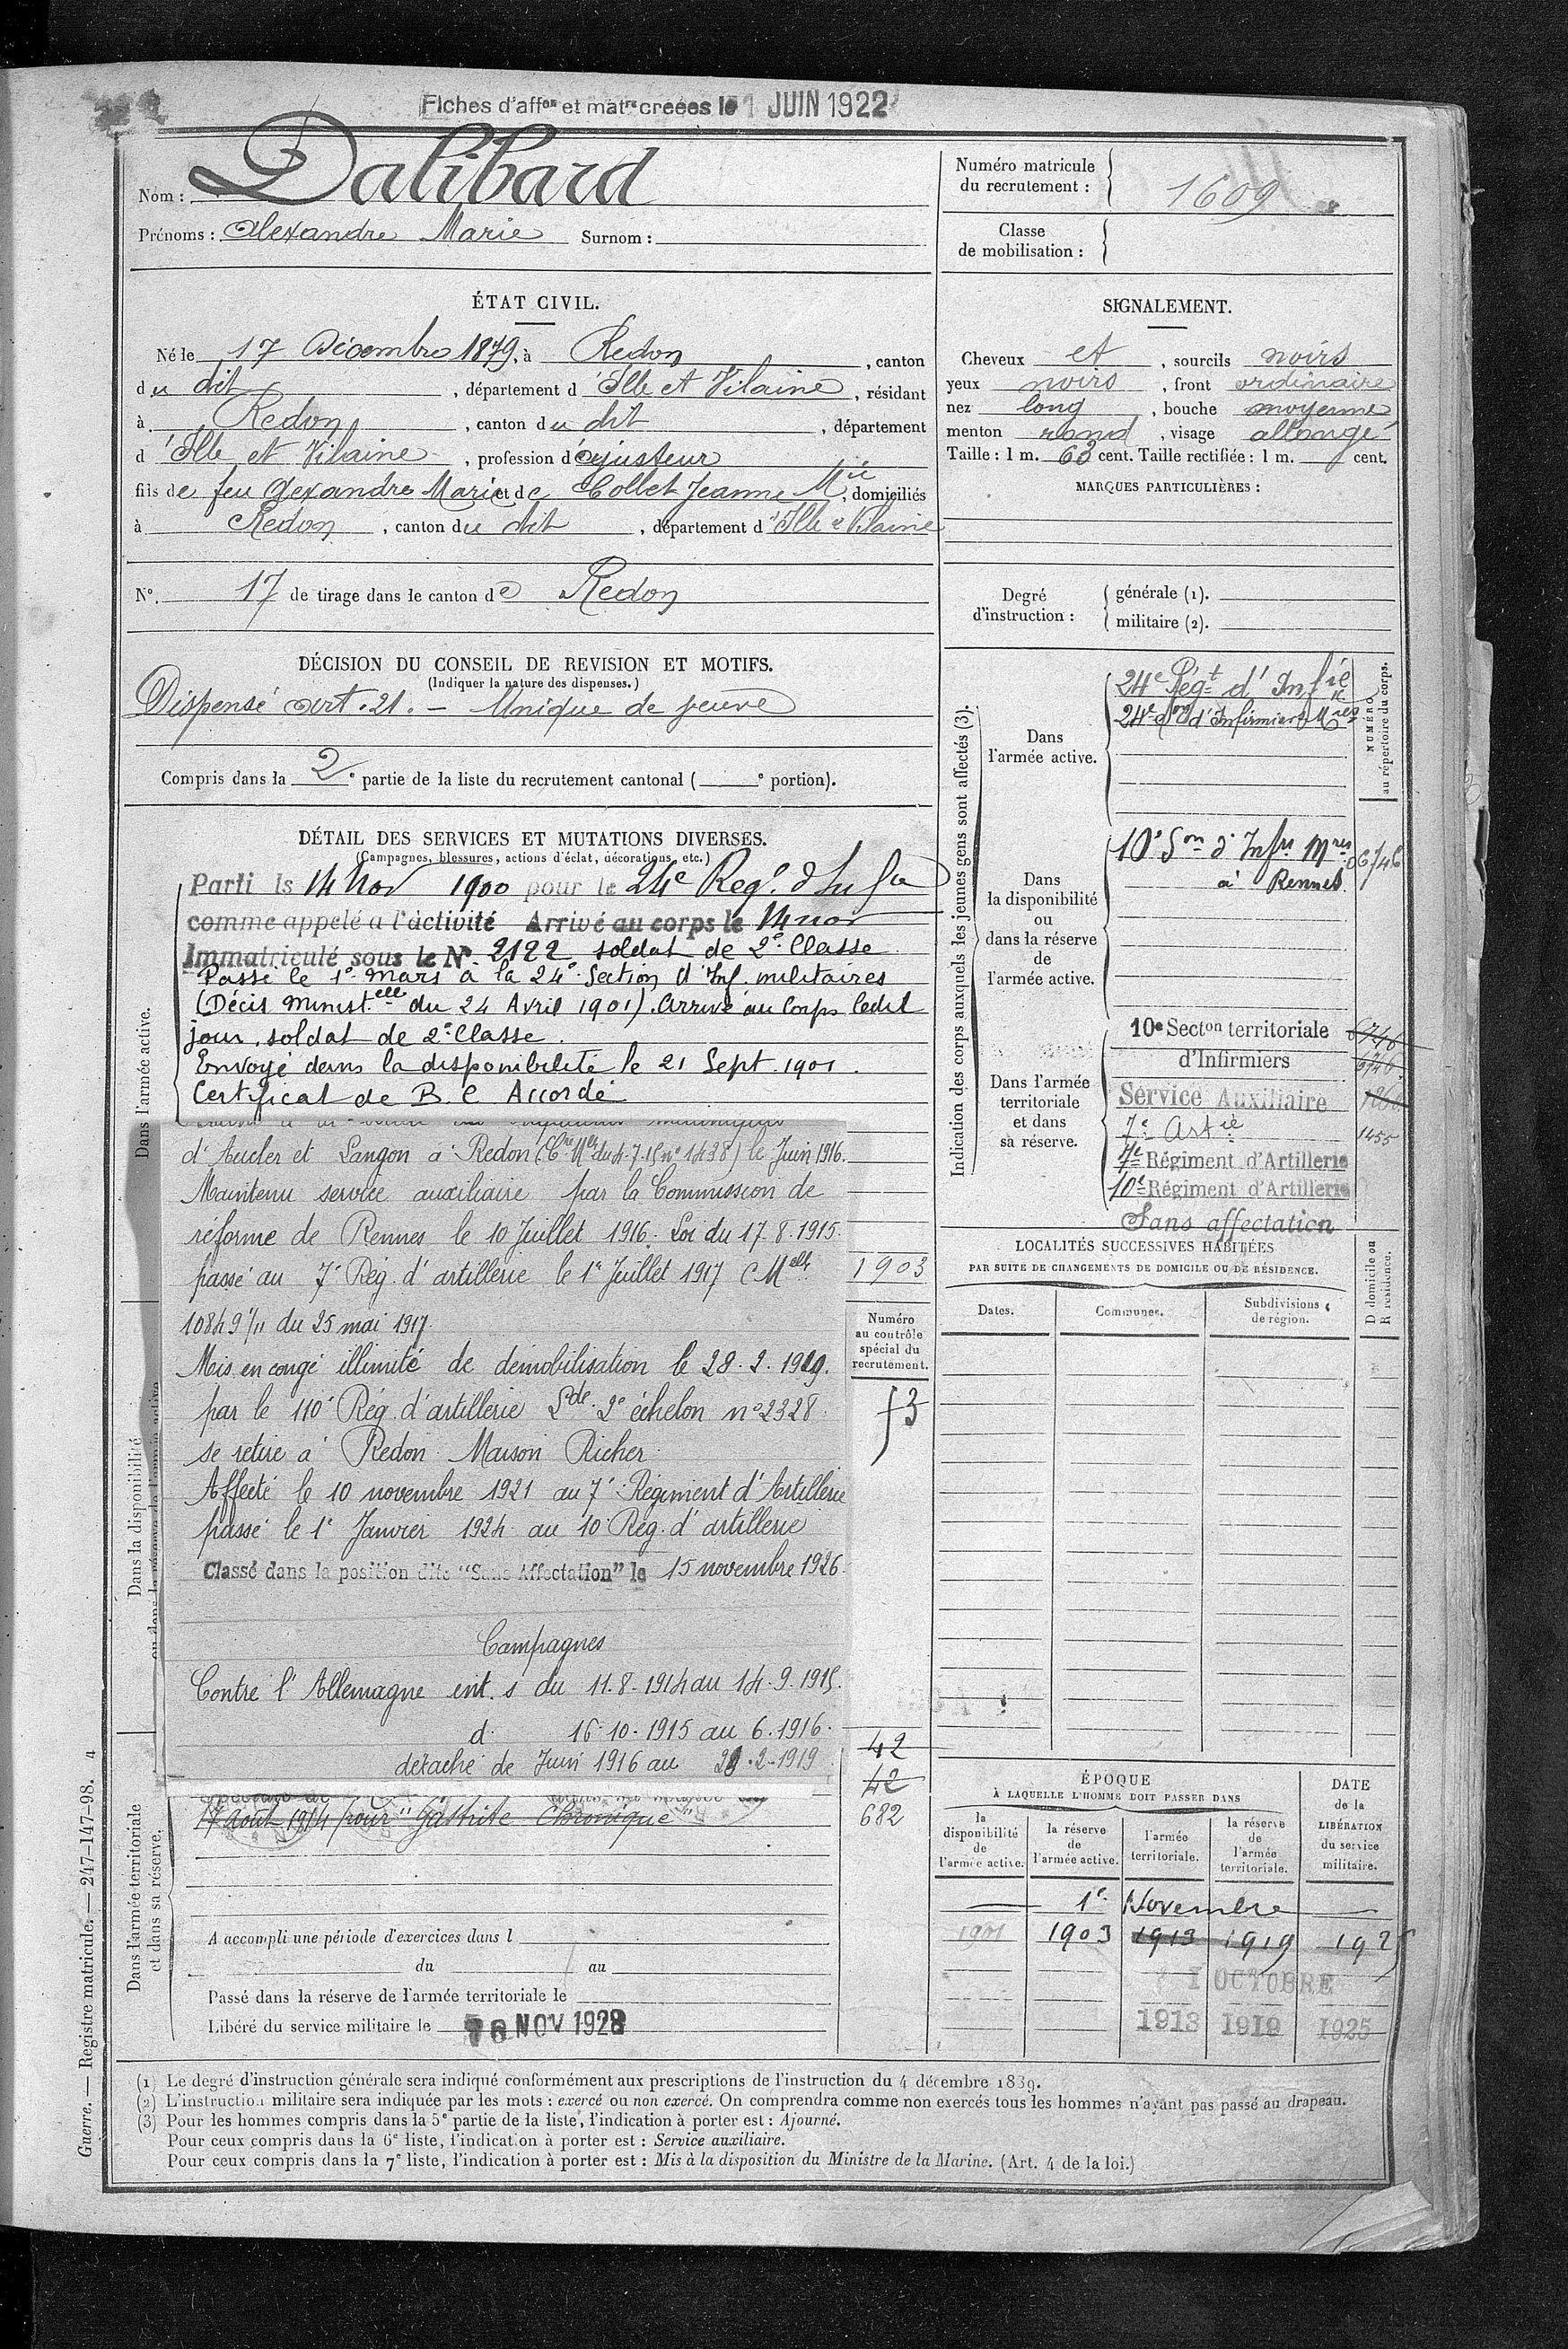 Fiches d'affon et matre creées le 1 JUIN 1922
Nom : Dalibard
Prénoms : Alexandre Marie Surnom :
Numéro matricule du recrutement : 1609
Classe de mobilisation :
ÉTAT CIVIL.
Né le 17 Décembre 1879, à Redon, canton
du dit, département d'Ille et Vilaine, résidant
à Redon, canton du dit, département
d'Ille et Vilaine, profession d'ajusteur
fils de feu Alexandre Marie et de Collet Jeanne Mie, domiciliés
à Redon, canton du dit, département d'Ille & Vilaine
N° 17 de tirage dans le canton de Redon
SIGNALEMENT.
Cheveux et, sourcils noirs
yeux noirs, front ordinaire
nez long, bouche moyenne
menton rond, visage allongé
Taille : 1 m. 63 cent. Taille rectifiée : 1 m. cent.
MARQUES PARTICULIÈRES :
Degré d'instruction : générale (1).
militaire (2).
DÉCISION DU CONSEIL DE REVISION ET MOTIFS.
(Indiquer la nature des dispenses.)
Dispensé art. 21. - Unique de veuve
Compris dans la 2e partie de la liste du recrutement cantonal ( e portion).
DÉTAIL DES SERVICES ET MUTATIONS DIVERSES.
(Campagnes, blessures, actions d'éclat, décorations, etc.)
Dans l'armée active.
Parti le 14 Nov 1900 pour le 24e Regt d'Infie
comme appelé a l'activité Arrivé au corps le 14 nov
Immatriculé sous le N° 2122 soldat de 2e Classe
Passé le 1er mars à la 24e Section d'Inf. militaires
(Décis minist.elle du 24 Avril 1901). Arrivé au Corps ledit
jour, soldat de 2e Classe.
Envoyé dans la disponibilité le 21 Sept. 1901.
Certificat de B. C Accordé
d'Aucler et Langon à Redon (Cre Mlle du 4-7-15 n° 1438) le Juin 1916.
Maintenu service auxiliaire par la Commission de
réforme de Rennes le 10 Juillet 1916. Loi du 17.8.1915.
passé au 7e Rég. d'artillerie le 1er Juillet 1917 C Melle
10849 1/11 du 25 mai 1917.
Mis en congé illimité de démobilisation le 28.2.1919.
par le 110e Rég. d'artillerie 2e échelon n° 2328.
se retire à Redon Maison Richer
Affecté le 10 novembre 1921 au 7e Régiment d'Artillerie
passé le 1er Janvier 1924 au 10e Rég. d'artillerie
Classé dans la position dite "Sans Affectation" le 15 novembre 1926.
Campagnes
Contre l'Allemagne int. s du 11.8.1914 au 14.9.1915.
d. 16.10.1915 au 6.1916.
détaché de Juin 1916 au 28.2.1919
17 août 1914 pour "Gastrite Chronique"
1903
Numéro au contrôle spécial du recrutement.
42
42
682
Dans la disponibilité
Dans l'armée territoriale et dans sa réserve.
A accompli une période d'exercices dans l
du au
Passé dans la réserve de l'armée territoriale le
Libéré du service militaire le 10 NOV 1928
Indication des corps auxquels les jeunes gens sont affectés (3).
NUMÉRO au répertoire du corps.
Dans l'armée active.
24e Régt d'Infie
24e Son d'Infirmiers Mres
Dans la disponibilité ou dans la réserve de l'armée active.
10e Son d'Infirs Mres 06746
à Rennes.
Dans l'armée territoriale et dans sa réserve.
10e Secton territoriale 6746
d'Infirmiers 6746
Service Auxiliaire
7e Artie 1455
7e Régiment d'Artillerie
10e Régiment d'Artillerie
Sans affectation
LOCALITÉS SUCCESSIVES HABITÉES
PAR SUITE DE CHANGEMENTS DE DOMICILE OU DE RÉSIDENCE.
D domicile ou R résidence.
Dates. Communes. Subdivisions de région.
ÉPOQUE
À LAQUELLE L'HOMME DOIT PASSER DANS
la disponibilité de l'armée active.
la réserve de l'armée active.
l'armée territoriale.
la réserve de l'armée territoriale.
DATE de la LIBÉRATION du service militaire.
1er Novembre
1901 1903 1913 1919 1925
1 OCTOBRE
1913 1919 1925
(1) Le degré d'instruction générale sera indiqué conformément aux prescriptions de l'instruction du 4 décembre 1889.
(2) L'instruction militaire sera indiquée par les mots : exercé ou non exercé. On comprendra comme non exercés tous les hommes n'ayant pas passé au drapeau.
(3) Pour les hommes compris dans la 5e partie de la liste, l'indication à porter est : Ajourné.
Pour ceux compris dans la 6e liste, l'indication à porter est : Service auxiliaire.
Pour ceux compris dans la 7e liste, l'indication à porter est : Mis à la disposition du Ministre de la Marine. (Art. 4 de la loi.)
Guerre. — Registre matricule. — 247-147-98. 4